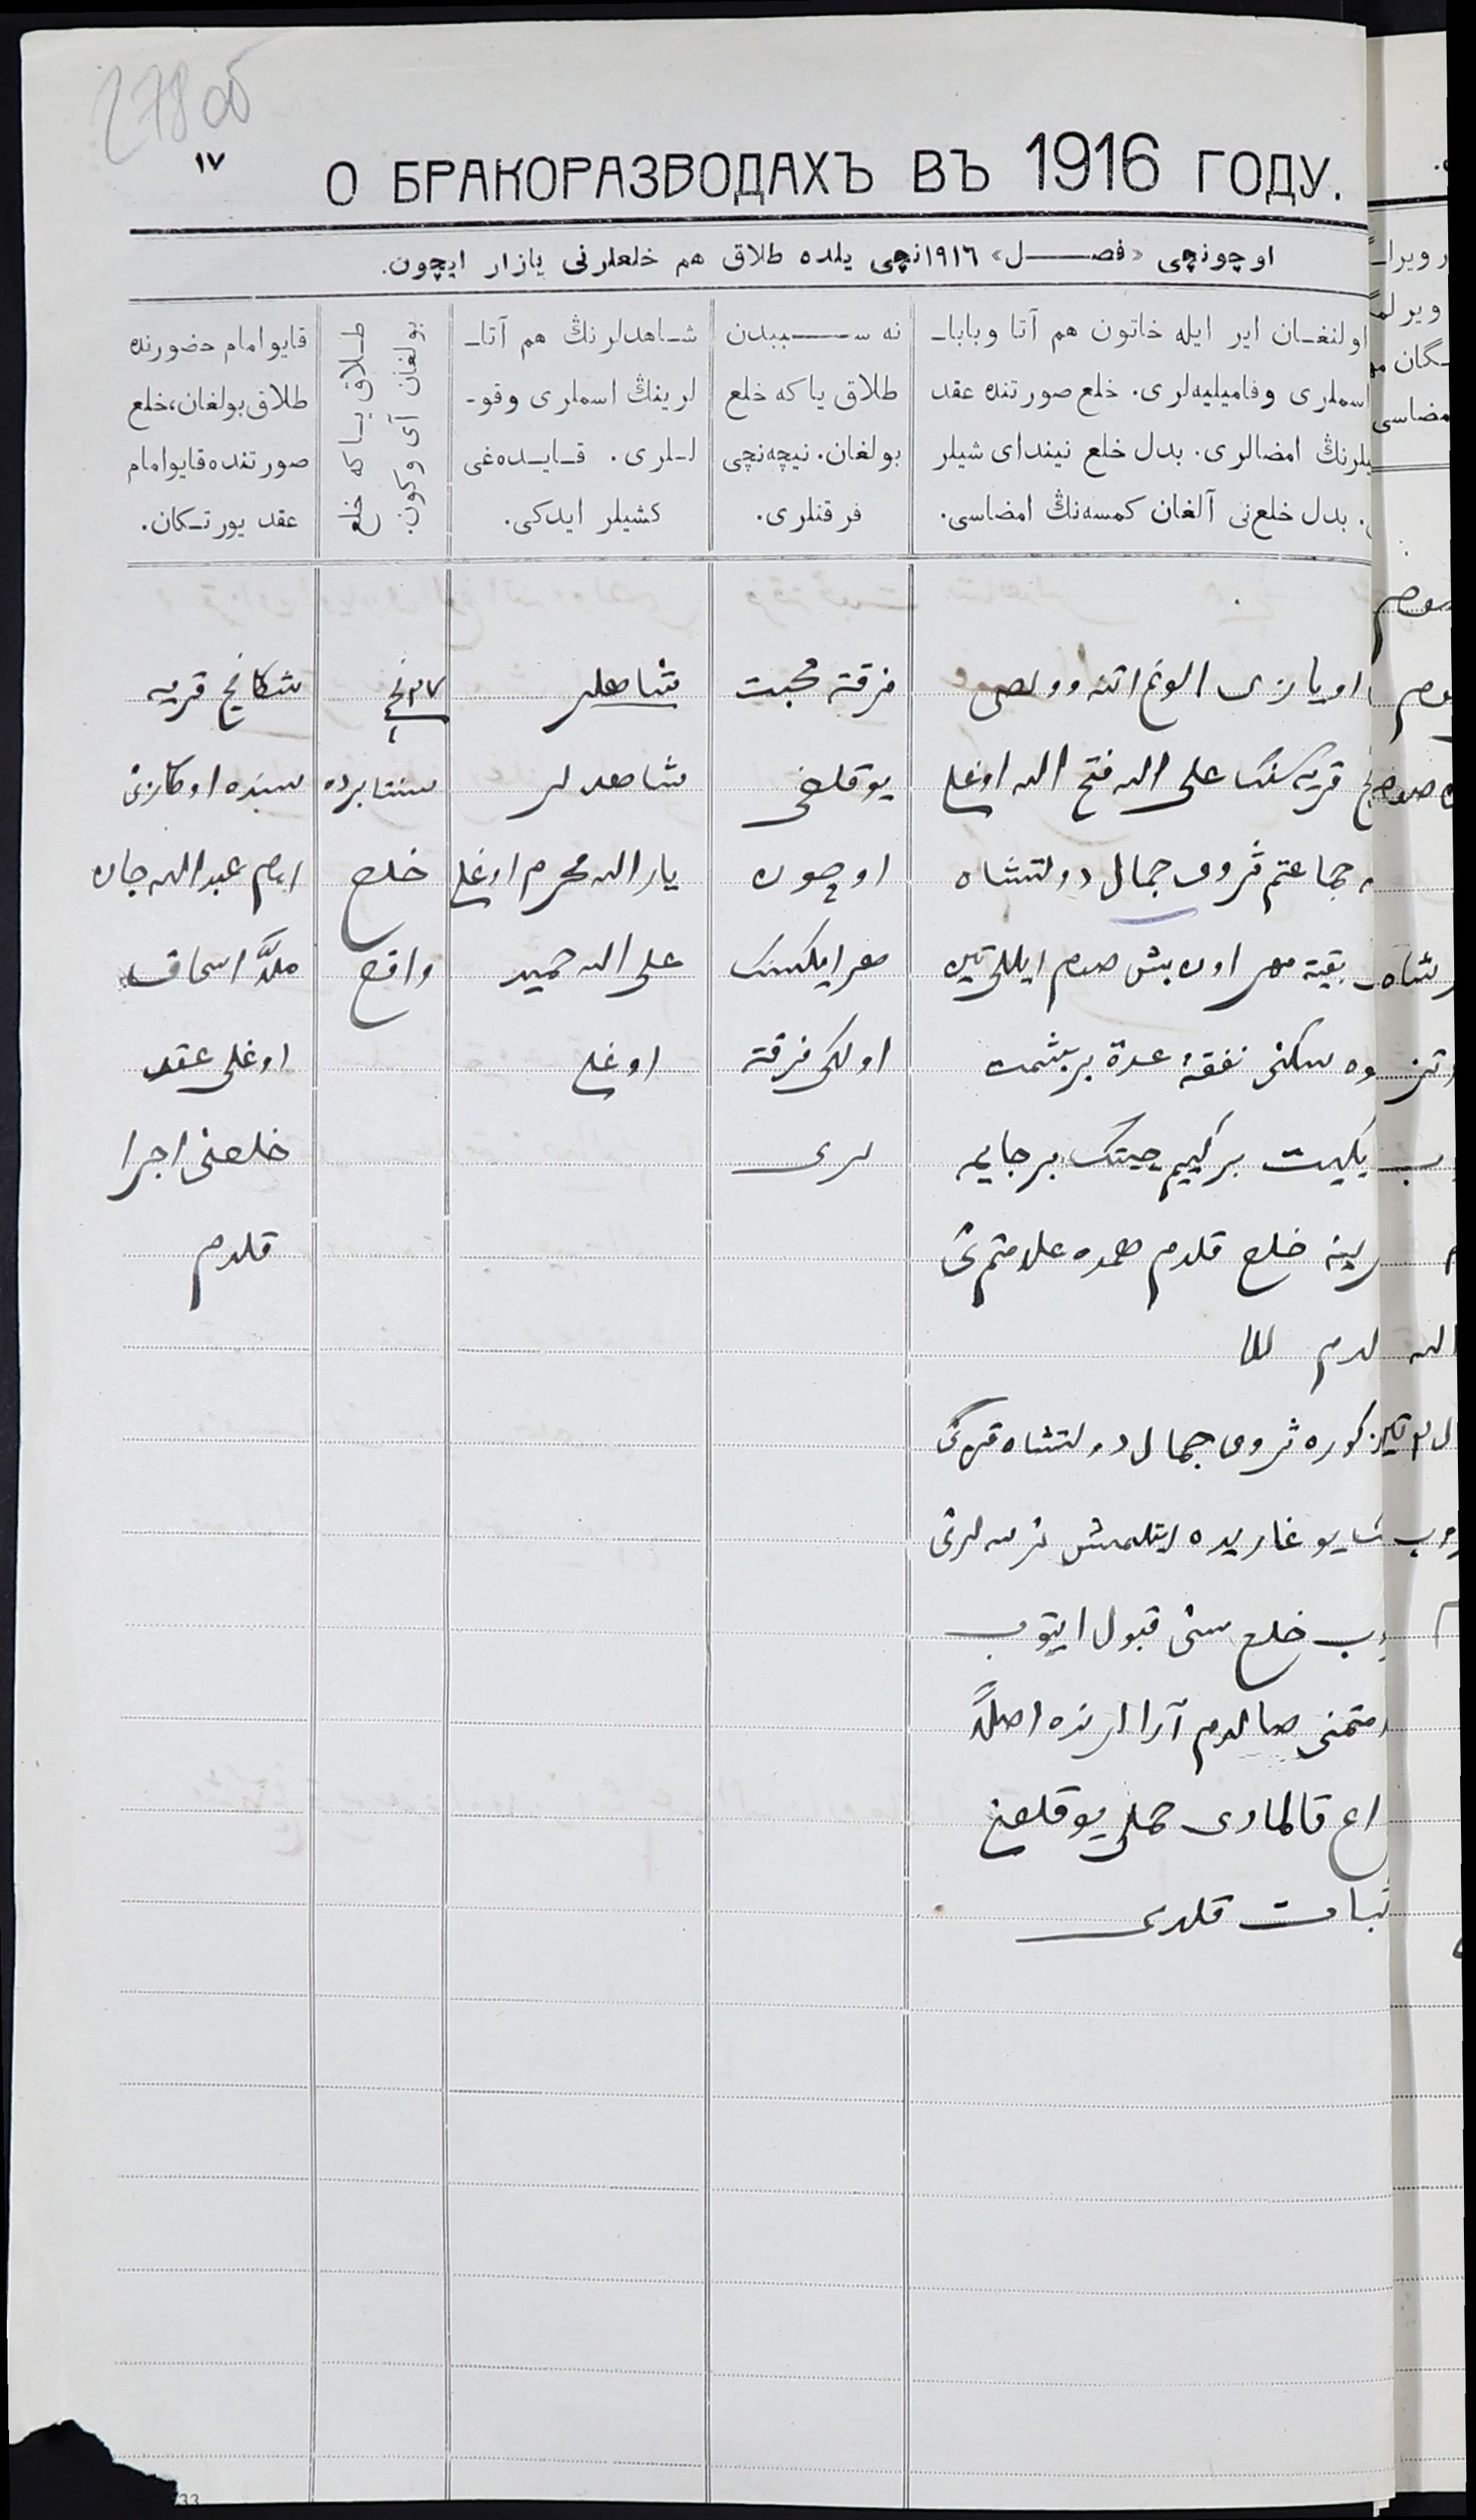 278 об
١٧
О БРАКОРАЗВОДАХЪ ВЪ 1916 ГОДУ.
اوچونچی «فصل» ١٩١٦نچی یلده طلاق هم خلعلرنی یازار ایچون.
اولنغان ایر ایله خاتون هم آتا وبابا-
اسملری وفامیلیه‌لری. خلع صورتنده عقد
یلرنڭ امضالری. بدل خلع نیندای شیلر
بدل خلع‌نی آلغان کمسه‌نڭ امضاسی.
نه سببدن
طلاق یاکه خلع
بولغان. نیچه‌نچی
فرقتلری.
شاهدلرنڭ هم آتا-
لرینڭ اسملری وقو-
للری. قایده‌غی
کشیلر ایدکی.
طلاق یاکه خلع
بولغان آی وکون.
قایو امام حضورنده
طلاق بولغان، خلع
صورتنده قایو امام
عقد یورتکان.
اویازی الوغ اتنه وولصی
قریه سنک علی الله فتح الله اوغلی
جماعتم ثروی جمال دولتشاه
بقیه مهر اون بش صوم ایللی تین
سکنی نفقهٔ عدة بر بشمت
یکیت بر کییم چیتک بر جایمه
خلع قلدم همده علامتم نی
لدم
کوره ثروی جمال دولتشاه قزی نی
یوغاریده ایتلمش نرسه لرنی
خلع سنی قبول ایتوب
متمنی صالدم آرالرنده اصلاً
قالمادی حملی یوقلغن
اثبات قلدی
فرقته محبت
یوقلغی
اوچون
مهر ایکسنک
اولکی فرقته
لری
شاهدلر
شاهدلر
یار الله محرم اوغلی
علی الله حمید
اوغلی
سنتابرده
خلع
واقع
قریه
سنده اوکازنی
امام عبد الله جان
ملا اسحاق
اوغلی عقد
خلعنی اجرا
قلدم